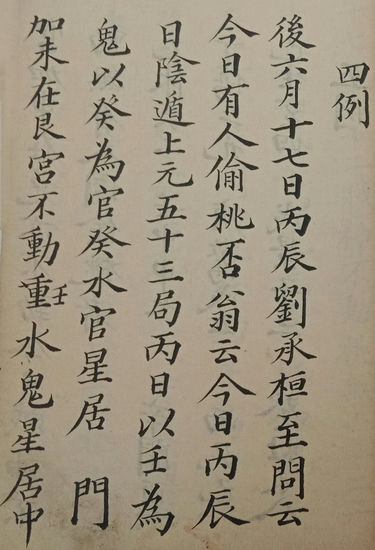 四例
後六月十七日丙辰劉承桓至問云
今日有人偷桃否翁云今日丙辰
日陰遁上元五十三局丙日以壬為
鬼以癸為官癸水官星居 門
加未在艮宮不動重壬水鬼星居中